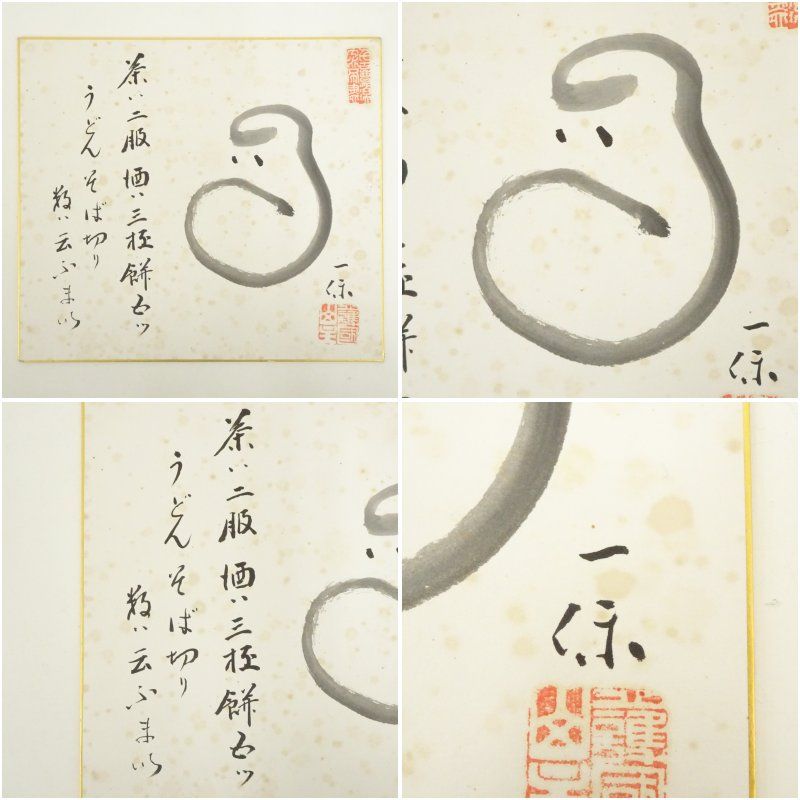 茶ハ二服 酒ハ三杯 餅五ツ
うどん そば切り
数ハ云ふまい
一保
一保
茶ハ二服 酒ハ三杯 餅五ツ
うどん そば切り
数ハ云ふまい
一保